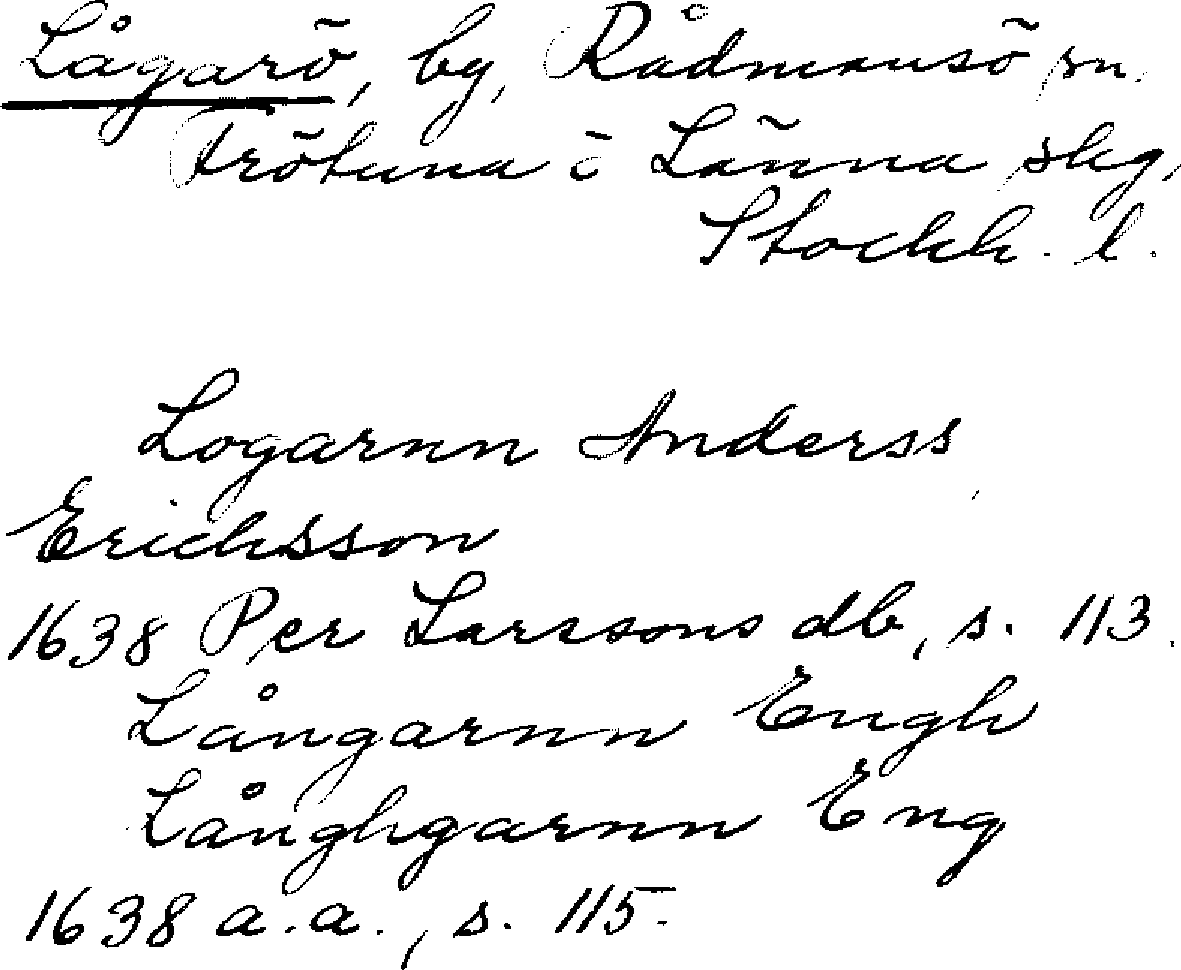 Lågarö, by, Rådmansö sn.
Frötuna o Länna skg,
Stockh. l.
Logarnn Anderss
Erichsson
1638 Per Larssons db, s. 113.
Långarnn Engh
Långhgarnn Eng
1638 a.a., s. 115.